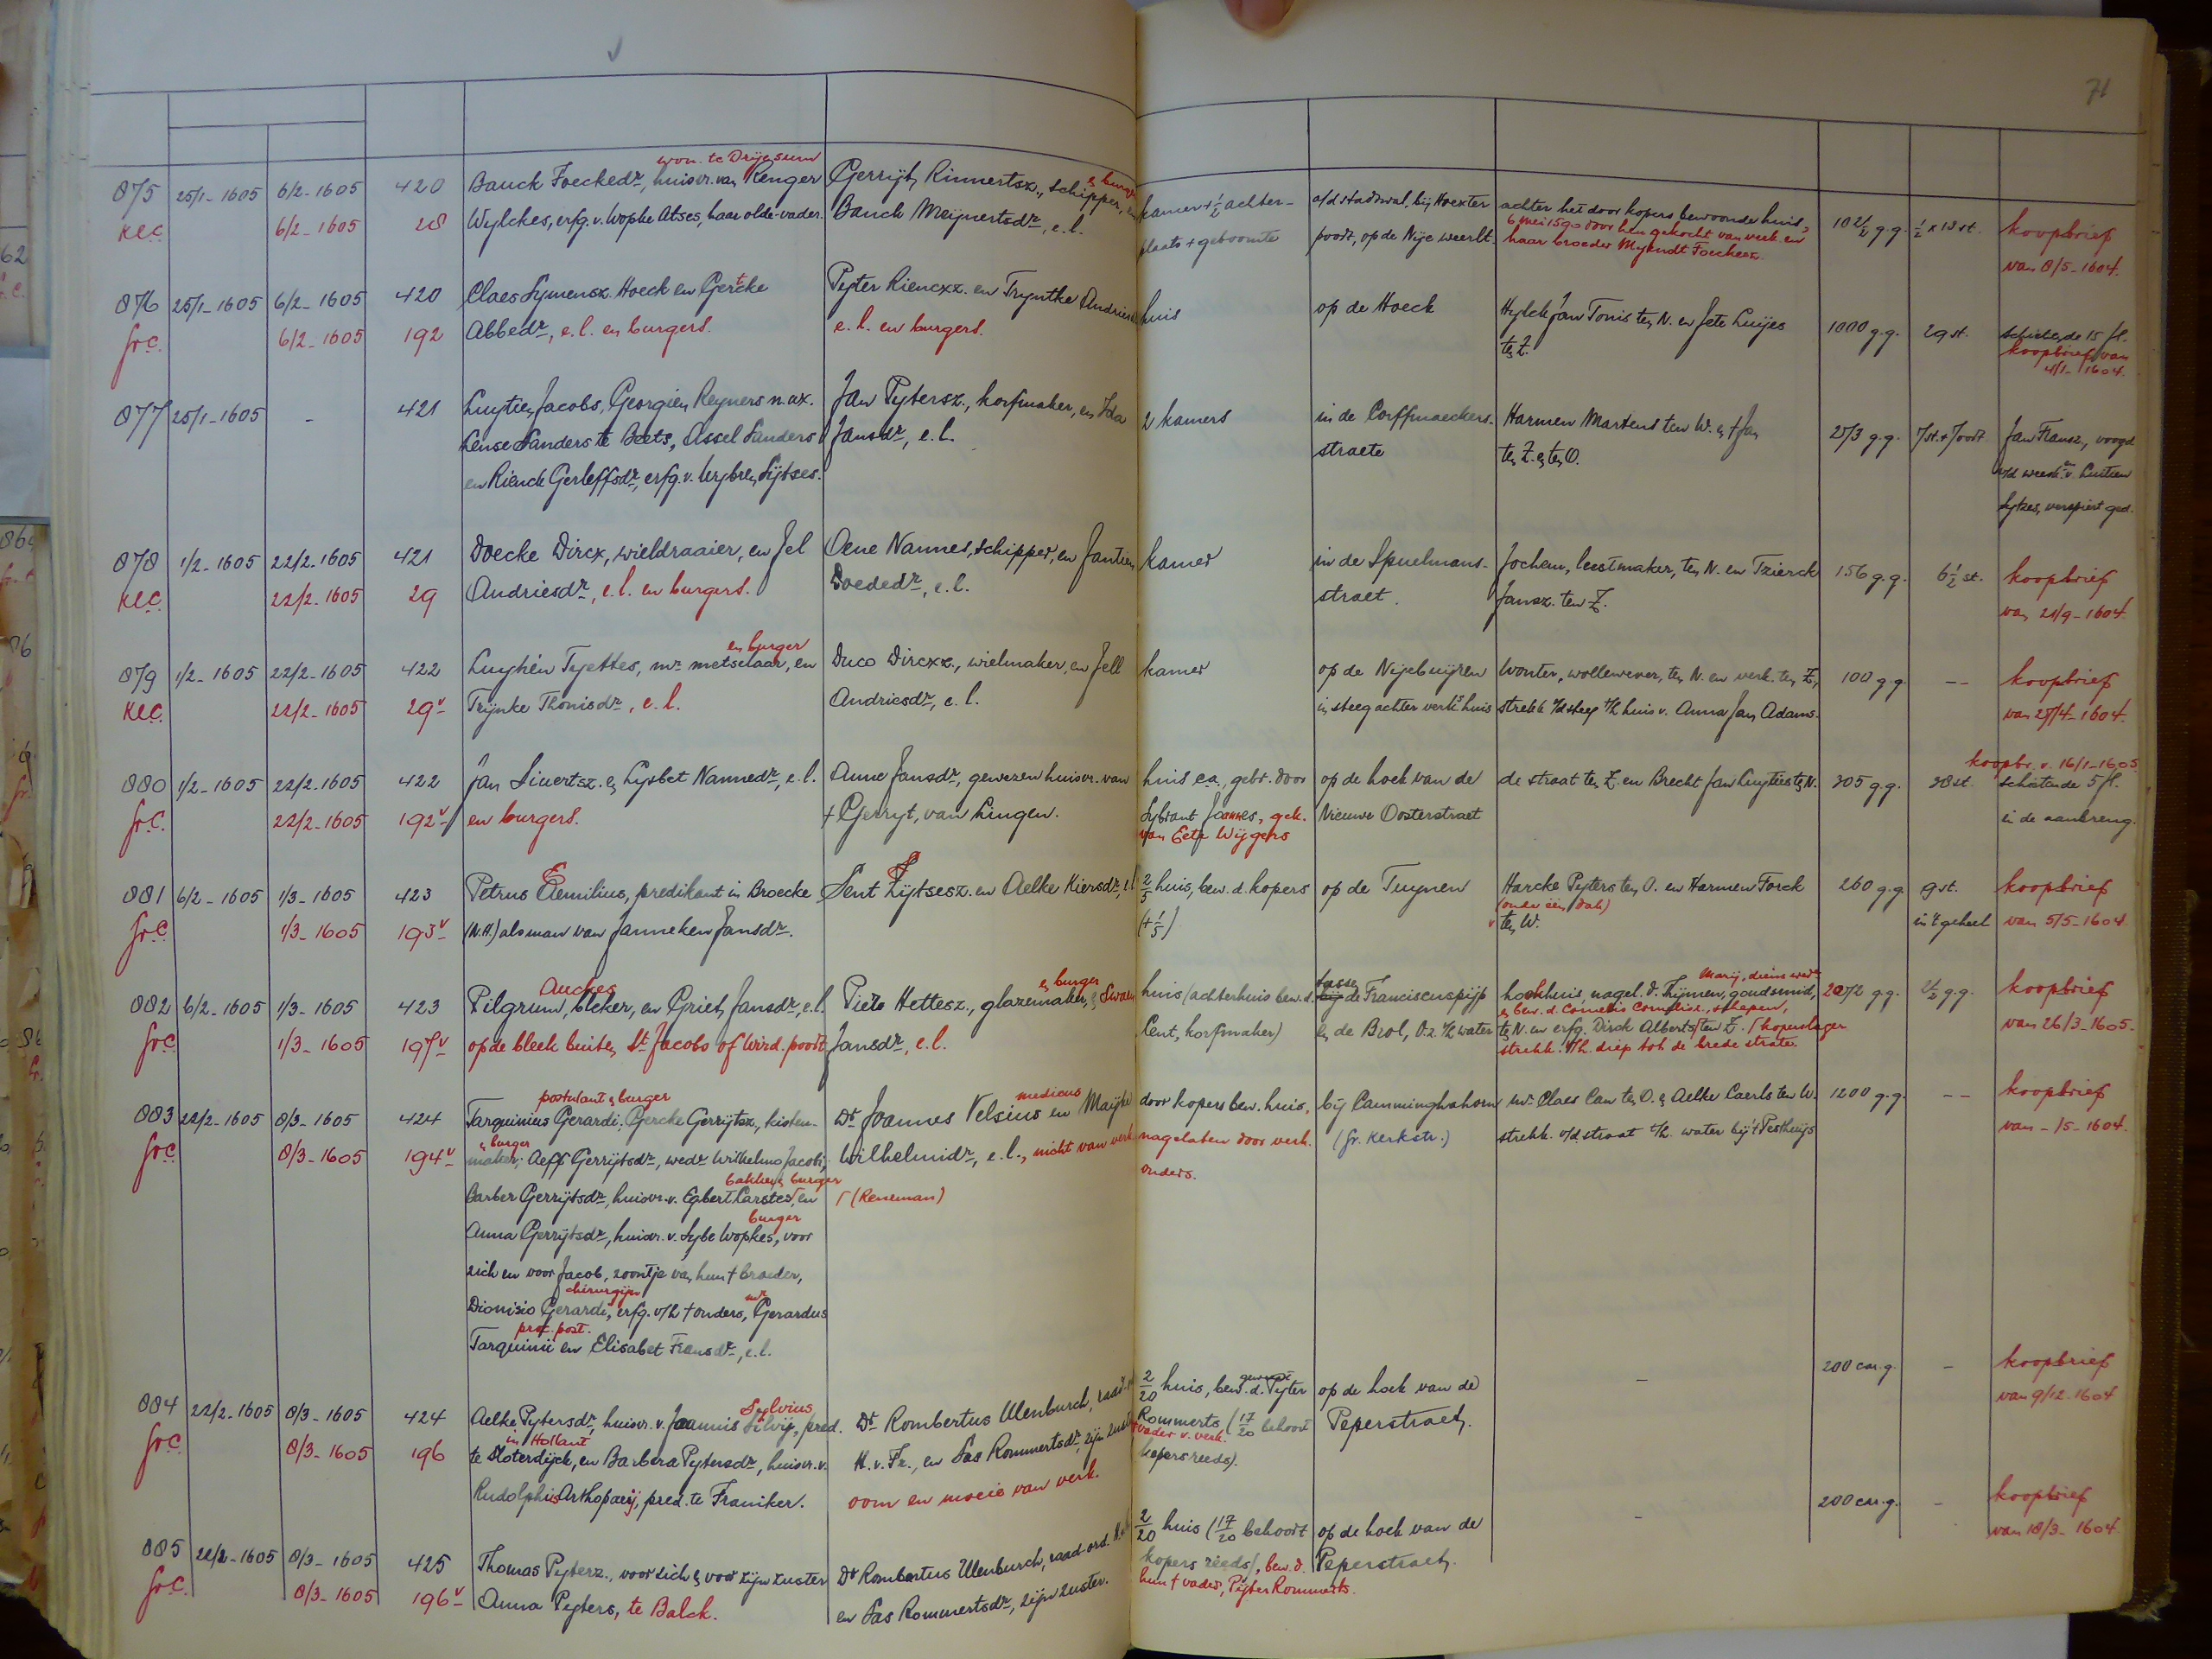 71
won. te Drijesum
875 25/1-1605 6/2-1605 420 Bauck Foeckedr, huisvr. van Renger Gerrijt Rinnertsz., schipper, kamer + ½ achter- a/d stadswal bij Hoexter achter het door kopers bewoonde huis, 102½ g.g. ½ x 13 st. koopbrief
6 Mei 1590 door hen gekocht van verk. en
K.C. 6/2-1605 28 Wijlckes, erfg. v. Wopke Atses, haar olde-vader. Bauck Meijnertsdr, e.l. plaats + geboomte poort, op de Nije weerlt. haar broeder Mijndt Foeckesz. van 8/5-1604.
876 25/1-1605 6/2-1605 420 Claes Symensz. Hoeck en Gercke Pyter Rienckz. en Tryntke Andries huis op de Hoeck Hylck Jan Tonis ten N. en Jets Luijes 1000 g.g. 29 st. schietende 15 fl.
Gr.C. 6/2-1605 192 Abbedr, e.l. en burgers. e.l. en burgers. ten Z. koopbrief van
4/1-1604.
877 25/1-1605 - 421 Luytien Jacobs, Georgien Reyners n. ux. Jan Pytersz., korfmaker, en Ida 2 kamers in de Corffmaeckers- Harmen Martens ten W. en † Jan 273 g.g. 7 st. + 7 oort. Jan Fransz., voogd
Lense Sanders te Beets, Assel Sanders Jansdr, e.l. straete ten Z. en ten O. o/d weesk. v. Luitien
en Rienck Gerleffsdr, erfg. v. Wybren Sytses. Sytzes, verspiert ged.
878 1/2-1605 22/2-1605 421 Doecke Dircx, wieldraaier, en Jel Oene Nannes, schipper, en Jantien kamer in de Spuelmans- Jochem, leestmaker, ten N. en Tzierck 156 g.g. 6½ st. koopbrief
K.C. 22/2-1605 29 Andriesdr, e.l. en burgers. Doededr, e.l. straet. Jansz. ten Z. van 21/9-1604.
en burger
879 1/2-1605 22/2-1605 422 Luytien Tyettes, mr. metselaar, en Duco Dircxz., wielmaker, en Jell kamer op de Nijebuijren Wouter, wollewever, ten N. en verk. ten Z, 100 g.g. -- koopbrief
K.C. 22/2-1605 29v Trijnke Thonisdr, e.l. Andriesdr, e.l. in steeg achter verk.s huis strekk. v/d steeg t/h huis v. Anna Jan Adams. van 27/4-1604.
koopbr. v. 16/1-1605.
880 1/2-1605 22/2-1605 422 Jan Siuertsz. en Lysbet Nannedr, e.l. Anne Jansdr, gewezen huisvr. van huis c.a., gebr. door op de hoek van de de straat ten Z. en Brecht Jan Luytiens ten N. 305 g.g. 38 st. schietende 5 fl.
Gr.C. 22/2-1605 192v en burgers. † Gerryt, van Lingen. Sybrant Joannes, gek. Nieuwe Oosterstraet in de aanbreng.
van Eets Wijgers
881 6/2-1605 1/3-1605 423 Petrus Aemilius, predikant in Broecke Sent Sytsesz. en Aelke Kiersdr, e.l. 2/5 huis, bew. d. kopers op de Tuynen Harcke Pyters ten O. en Harmen Forck 260 g.g. 9 st. koopbrief
(onder één dak)
Gr.C. 1/3-1605 193v (N.H.) als man van Janneken Jansdr. (+ 1/5) ten W. in 't geheel van 5/5-1604.
Auckes en burger tusse Marij, diens wedr.
882 6/2-1605 1/3-1605 423 Pilgrum, bleker, en Griet Jansdr, e.l. Pieter Hettesz., glazemaker, en Swaen huis (achterhuis bew. d. de Franciscuspijp hoekhuis, nagel. d. Thijmen, goudsmid, 2072 g.g. ½ g.g. koopbrief
en bew. d. Cornelis Cornelisz., schepen,
Gr.C. 1/3-1605 197v op de bleek buiten St Jacobs of Wird. poort Jansdr, e.l. Cent, korfmaker) en de Brol, O.z. v/h water ten N. en erfg. Dirck Alberts ten Z. / koperslager van 26/3-1605.
strekk. v/h. diep tot de brede strate.
postulant en burger medicus
883 22/2-1605 8/3-1605 424 Tarquinius Gerardi, Gercke Gerrijtsz, kisten- Dr. Joannes Velsius en Maijke door kopers bew. huis, bij Camminghahorn mr. Claes Cam ten O. en Aelke Caerls ten W. 1200 g.g. -- koopbrief
en burger
Gr.C. 8/3-1605 194v maker; Aeff Gerrijtsdr, wedr Wilhelmo Jacobi, Wilhelmidr, e.l., nicht van verk. nagelaten door verk. (Gr. Kerkstr.) strekk. v/d straat t/h. water bij 't Pesthuijs van - /5-1604.
bakker en burger
Barber Gerrijtsdr, huisvr. v. Egbert Carstes, en (Reneman) ouders.
burger
Anna Gerrijtsdr, huisvr. v. Sybe Wopkes, voor
zich en voor Jacob, zoontje van hun † broeder,
chirurgijn mr.
Dionisio Gerardi, erfg. v/h † ouders, Gerardus
prof. post.
Tarquinii en Elisabet Fransdr, e.l.
Sylvius gewezen
884 22/2-1605 8/3-1605 424 Aelke Pytersdr, huisvr. v. Joannis Silvij, pred. Dr. Rombertus Ulenburch, raad 2/20 huis, bew. d. Pyter op de hoek van de - 200 car. g. - koopbrief
in Hollant
Gr.C. 8/3-1605 196 te Sloterdijck, en Barbera Pytersdr, huisvr. v. H. v. Fr., en Sas Rommertsdr, zijn zuster Rommerts (17/20 behoort Peperstraet. van 9/12-1604
vader v. verk.
Rudolphus Arthopaeij, pred. te Franiker. oom en moeie van verk. kopers reeds).
885 22/2-1605 8/3-1605 425 Thomas Pyterz., voor zich en voor zijn zuster Dr Rombertus Ulenburch, raad-ord. 2/20 huis (17/20 behoort op de hoek van de - 200 car. g. - koopbrief
Gr.C. 8/3-1605 196v Anna Pyters, te Balck. en Sas Rommertsdr, zijn zuster. kopers reeds), bew. d. Peperstraet. van 18/3-1604.
hun † vader, Pijter Rommerts.